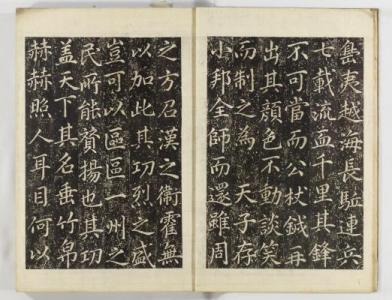 島夷越海長駈連兵
七載流血千里其鋒
不可當而公杖鉞再
出其顔色不動談笑
而制之為天子存
小邦全師而還雖周
之方召漢之衛霍無
以加此其功烈之盛
豈可以區區一州之
民所能贊揚也其功
盖天下其名垂竹帛
赫赫照人耳目何以